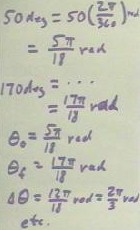 50 deg = 50(2π/360) rad
= 5π/18 rad
170 deg = ...
= 17π/18 rad
θ₀ = 5π/18 rad
θf = 17π/18 rad
Δθ = 12π/18 rad = 2π/3 rad
etc.